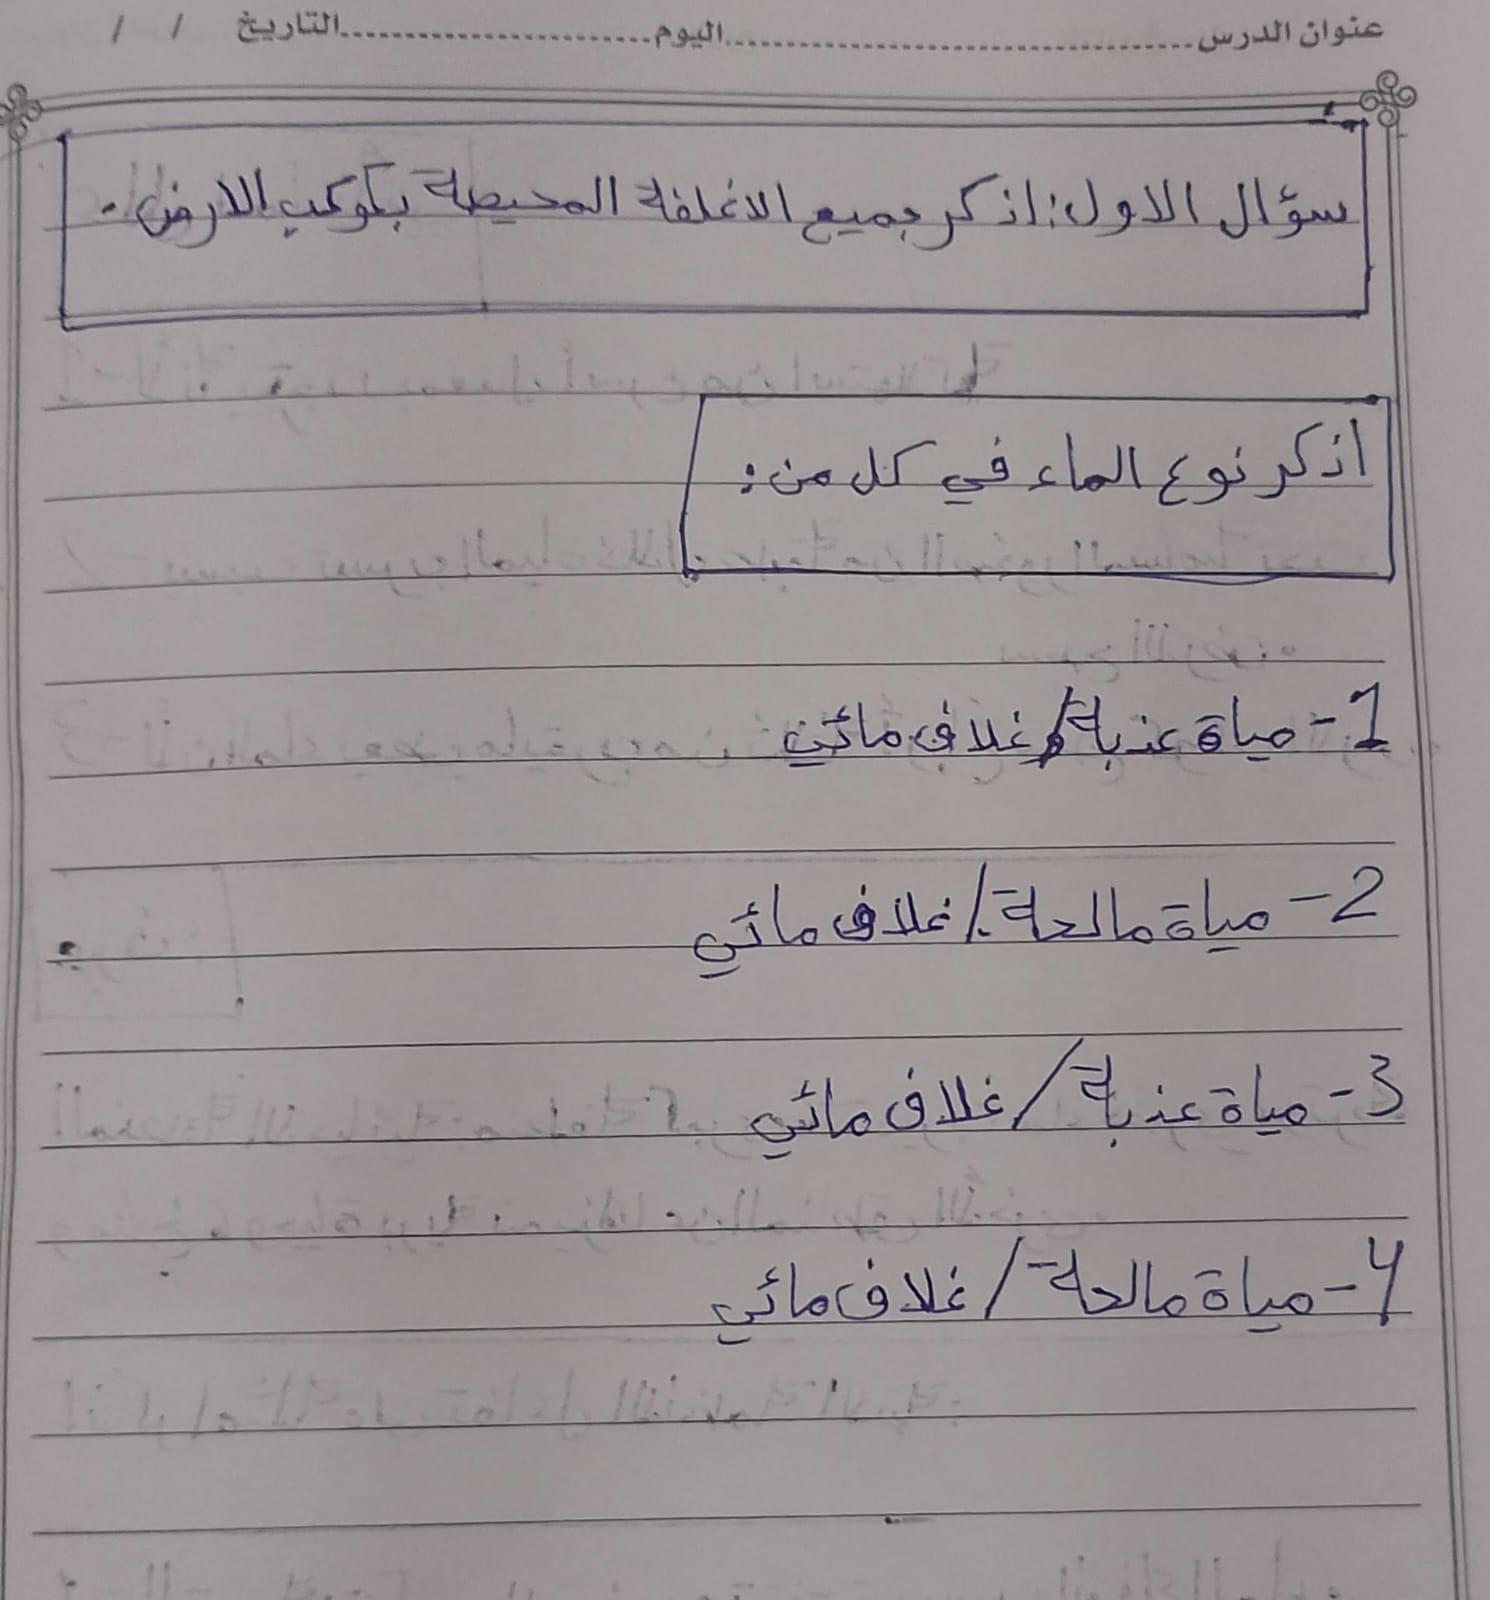 عنوان الدرس........................................اليوم........................التاريخ / /
سؤال الاول: اذكر جميع الاغلفة المحيطة بكوكب الارض.
اذكر نوع الماء في كل من:
1- مياة عذبة/غلاف مائي
2- مياة مالحة/غلاف مائي
3- مياة عذبة/غلاف مائي
4- مياة مالحة/غلاف مائي